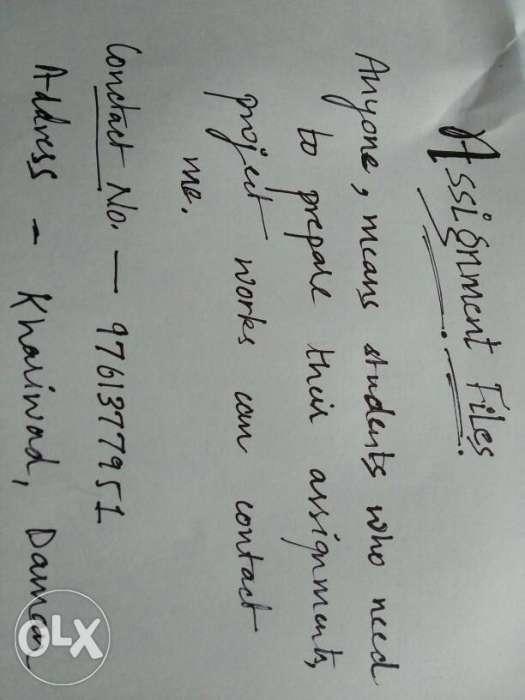 Assignment Files
Anyone, means students who need
to prepare their assignments,
project works can contact
me.
Contact No. — 9761377951
Address - Khariwad, Daman
OLX